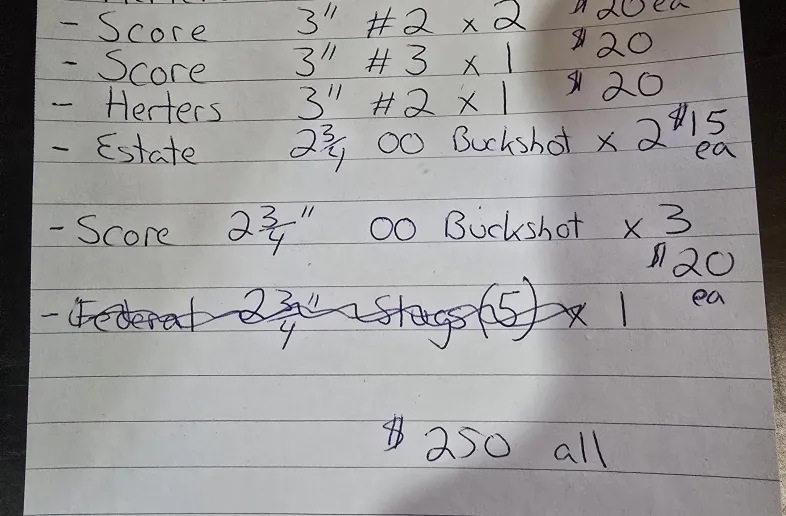 - Score 3" #2 x 2 $20 ea
- Score 3" #3 x 1 $20
- Herters 3" #2 x 1 $20
- Estate 2 3/4 00 Buckshot x 2 $15 ea
- Score 2 3/4" 00 Buckshot x 3
$20 ea
- Federal 2 3/4" Slugs (5) x 1
$250 all